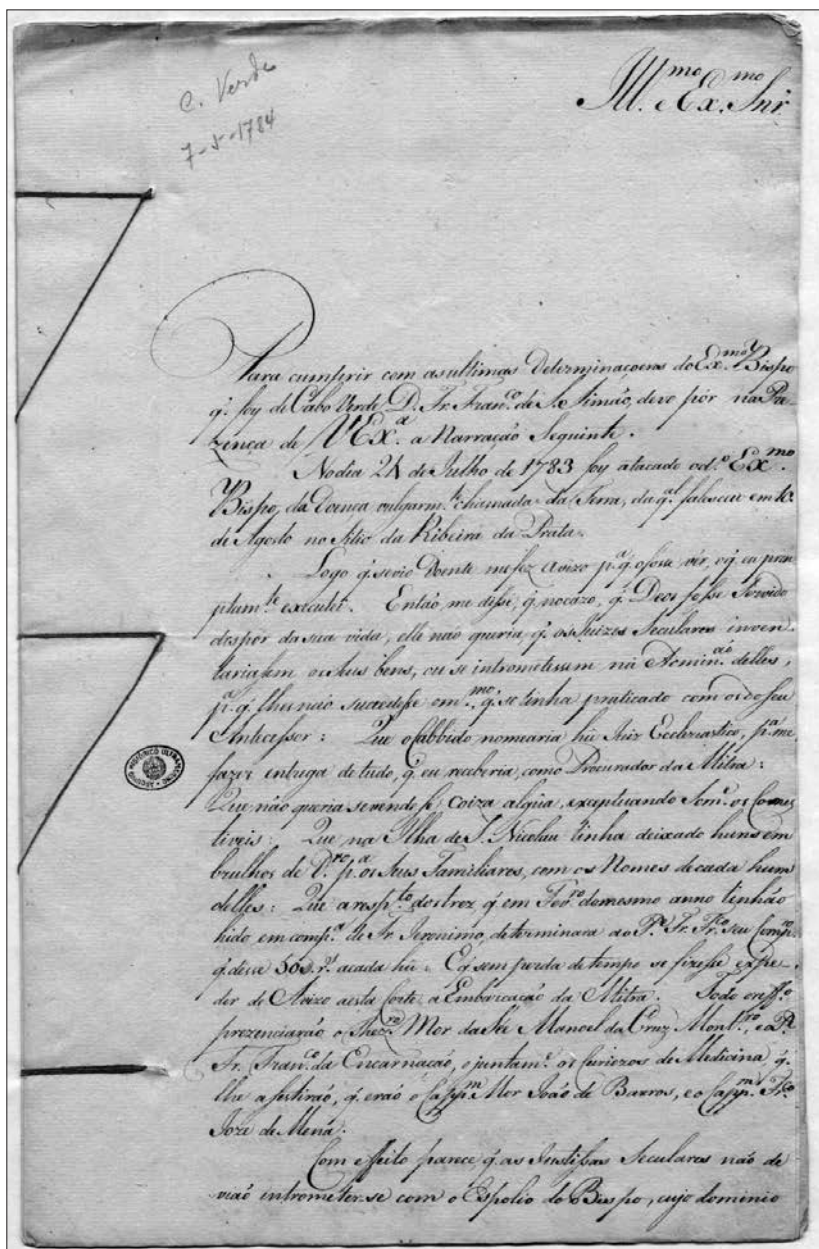 C. Verde
7-5-1784
Ill.mo e Ex.mo Snr.
Para cumprir com as ultimas Determinaçoens do Ex.mo Bispo
q. foy de Cabo Verde D. Fr. Fran.co de S. Simão, devo pôr na Pre-
zença de V Ex.a a Narração Seguinte.
No dia 24 de Julho de 1783 foy atacado o d.o Ex.mo
Bispo, da Doença vulgarm.te chamada da Terra, da q.l faleceu em 10
de Agosto no Sitio da Ribeira da Prata.
Logo q. se vio Doente me fez avizo p.a q. o fosse vêr, o q. eu prom-
ptam.te executei. Então me disse, q. no cazo, q. Deos fosse Servido
despôr da sua vida, elle não queria, q. os Juizes Seculares inven-
tariassem os seus bens, ou se intromettessem na Admin.ão delles,
p.a q. lhes não succedesse o m.mo, q. se tinha praticado com os do seu
Antecessor: Que o Cabbido nomearia hũ Juiz Ecclesiastico, p.a me
fazer entrega de tudo, q. eu receberia, como Procurador da Mitra:
Que não queria se vendesse coiza algũa, exceptuando Som.e os Comes-
tiveis: Que na Ilha de S. Nicolau tinha deixado huns em-
brulhos de D.ro p.a os seus Familiares, com os Nomes de cada hum
delles: Que a resp.to dos trez q. em Fev.ro do mesmo anno tinhão
hido em comp.a de Fr. Jeronimo, determinara ao P.e Fr. Fr.co seu Comp.ro
q. désse 50$ r.s a cada hũ: E q. sem perda de tempo se fizesse expe-
der de Avizo a esta Corte a Embarcação da Mitra. Todo o reff.o
prezenciarão o Thez.ro Mor da Sé Manoel da Cruz Mont.ro, e o P.e
Fr. Fran.co da Encarnação, e juntam.e os Curiozos de Medicina, q.
lhe assistirão, q. erão o Capp.m Mor João de Barros, e o Capp.m Fr.co
Joze de Mena.
Com effeito parece q. as Justissas Seculares não de-
vião intrometer-se com o Espolio do Bispo, cujo dominio
ARQUIVO HISTÓRICO ULTRAMARINO